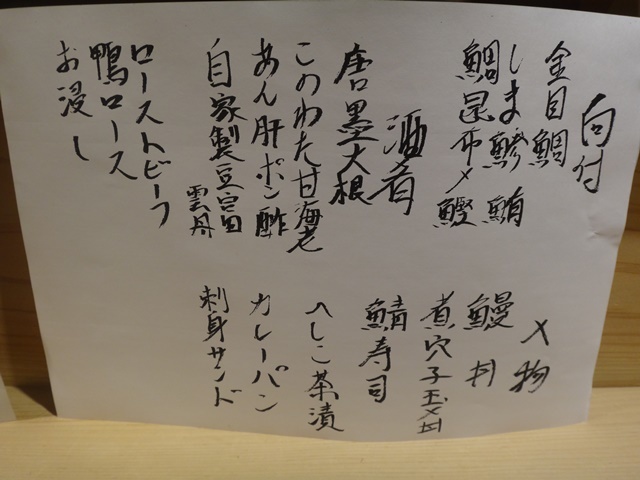 向付
金目鯛
しま鯵 鮪
鯛昆布〆 鰹
酒肴
唐墨大根
このわた甘海老
あん肝ポン酢
自家製豆富
雲丹
ローストビーフ
鴨ロース
お浸し
〆物
鰻丼
煮穴子玉〆丼
鯖寿司
へしこ茶漬
カレーパン
刺身サンド